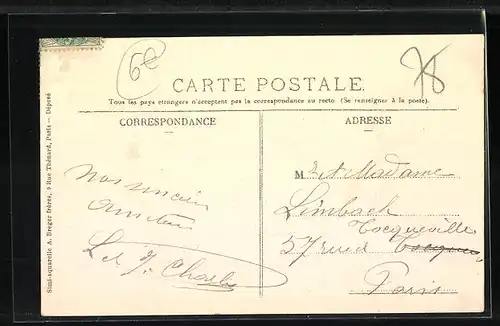 6e
78
CARTE POSTALE.
Tous les pays étrangers n'acceptent pas la correspondance au recto (Se renseigner à la poste).
CORRESPONDANCE
ADRESSE
Simi-aquarelle A. Breger frères, 9 Rue Thénard, Paris — Déposé
M. et Madame
Limbach
Tocqueville
57 rue
Paris
L et J. Charles